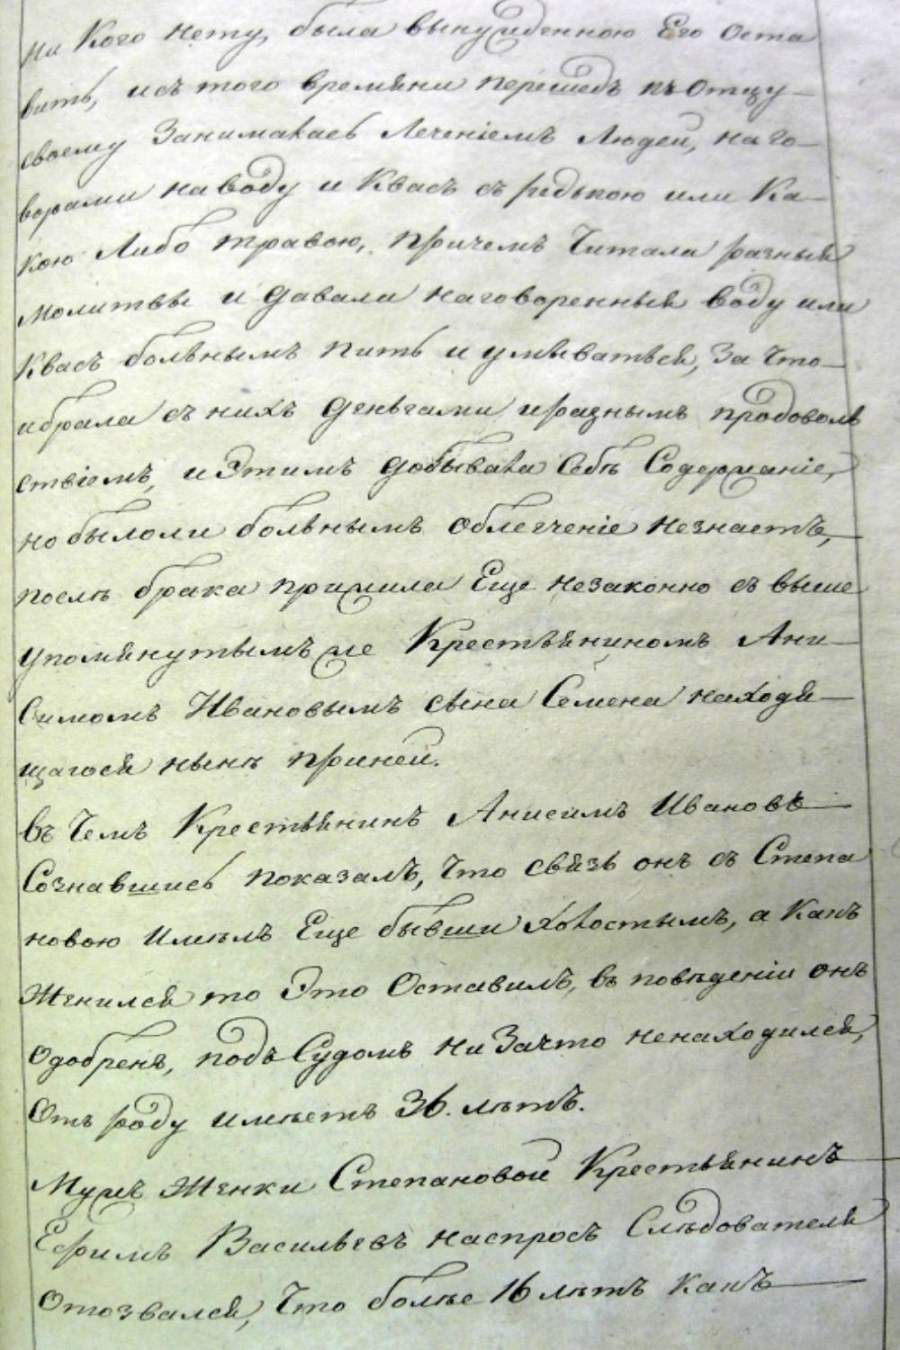 ни кого нету, была вынужденною Его оста
вить, исъ того времяни перешедъ къ Отцу
своему Занималась Леченіемъ Людей, наго-
ворами на воду и Квасъ съ редькою или Ка-
кою Либо травою, причемъ Читала разныя
молитвы и давала наговоренныя воду или
Квасъ больнымъ пить и умыватьея, За Что
ибрала съ нихъ деньгами иразнымъ продоволь
ствіемъ, и Этимъ добывала Себѣ Содержаніе,
но былоли больнымъ облегченіе незнаетъ,
послѣ брака прижила Еще незаконно съ выше
упомянутымъ же Крестьяниномъ Ани-
симомъ Ивановымъ сына Семена находя-
щагося нынѣ приней.
въ Чемъ Крестьянинъ Анисимъ Ивановъ
Сознавшись показалъ, Что связь онъ съ Степа
новою имѣлъ Еще бывши холостымъ, а какъ
Женился то Это Оставилъ, въ повѣденіи онъ
Одобренъ, подъ Судомъ ни Зачто ненаходился,
Отъ роду имѣетъ 36. лѣтъ.
Мужъ Женки Степановой Крестьянинъ
Ефимъ Васильевъ наспросъ Слѣдователя
Отозвался, Что болѣе 16 лѣтъ какъ